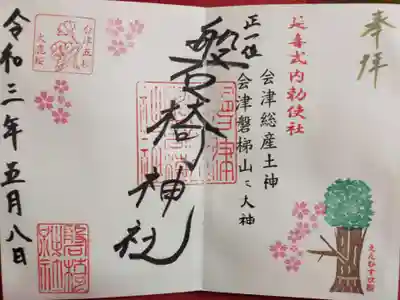 奉拝
延喜式内勅使社
会津総産土神
会津磐梯山ミ大神
正一位
磐椅神社
令和三年五月八日
会津五桜
大鹿桜
えんむすび桜
磐椅神社